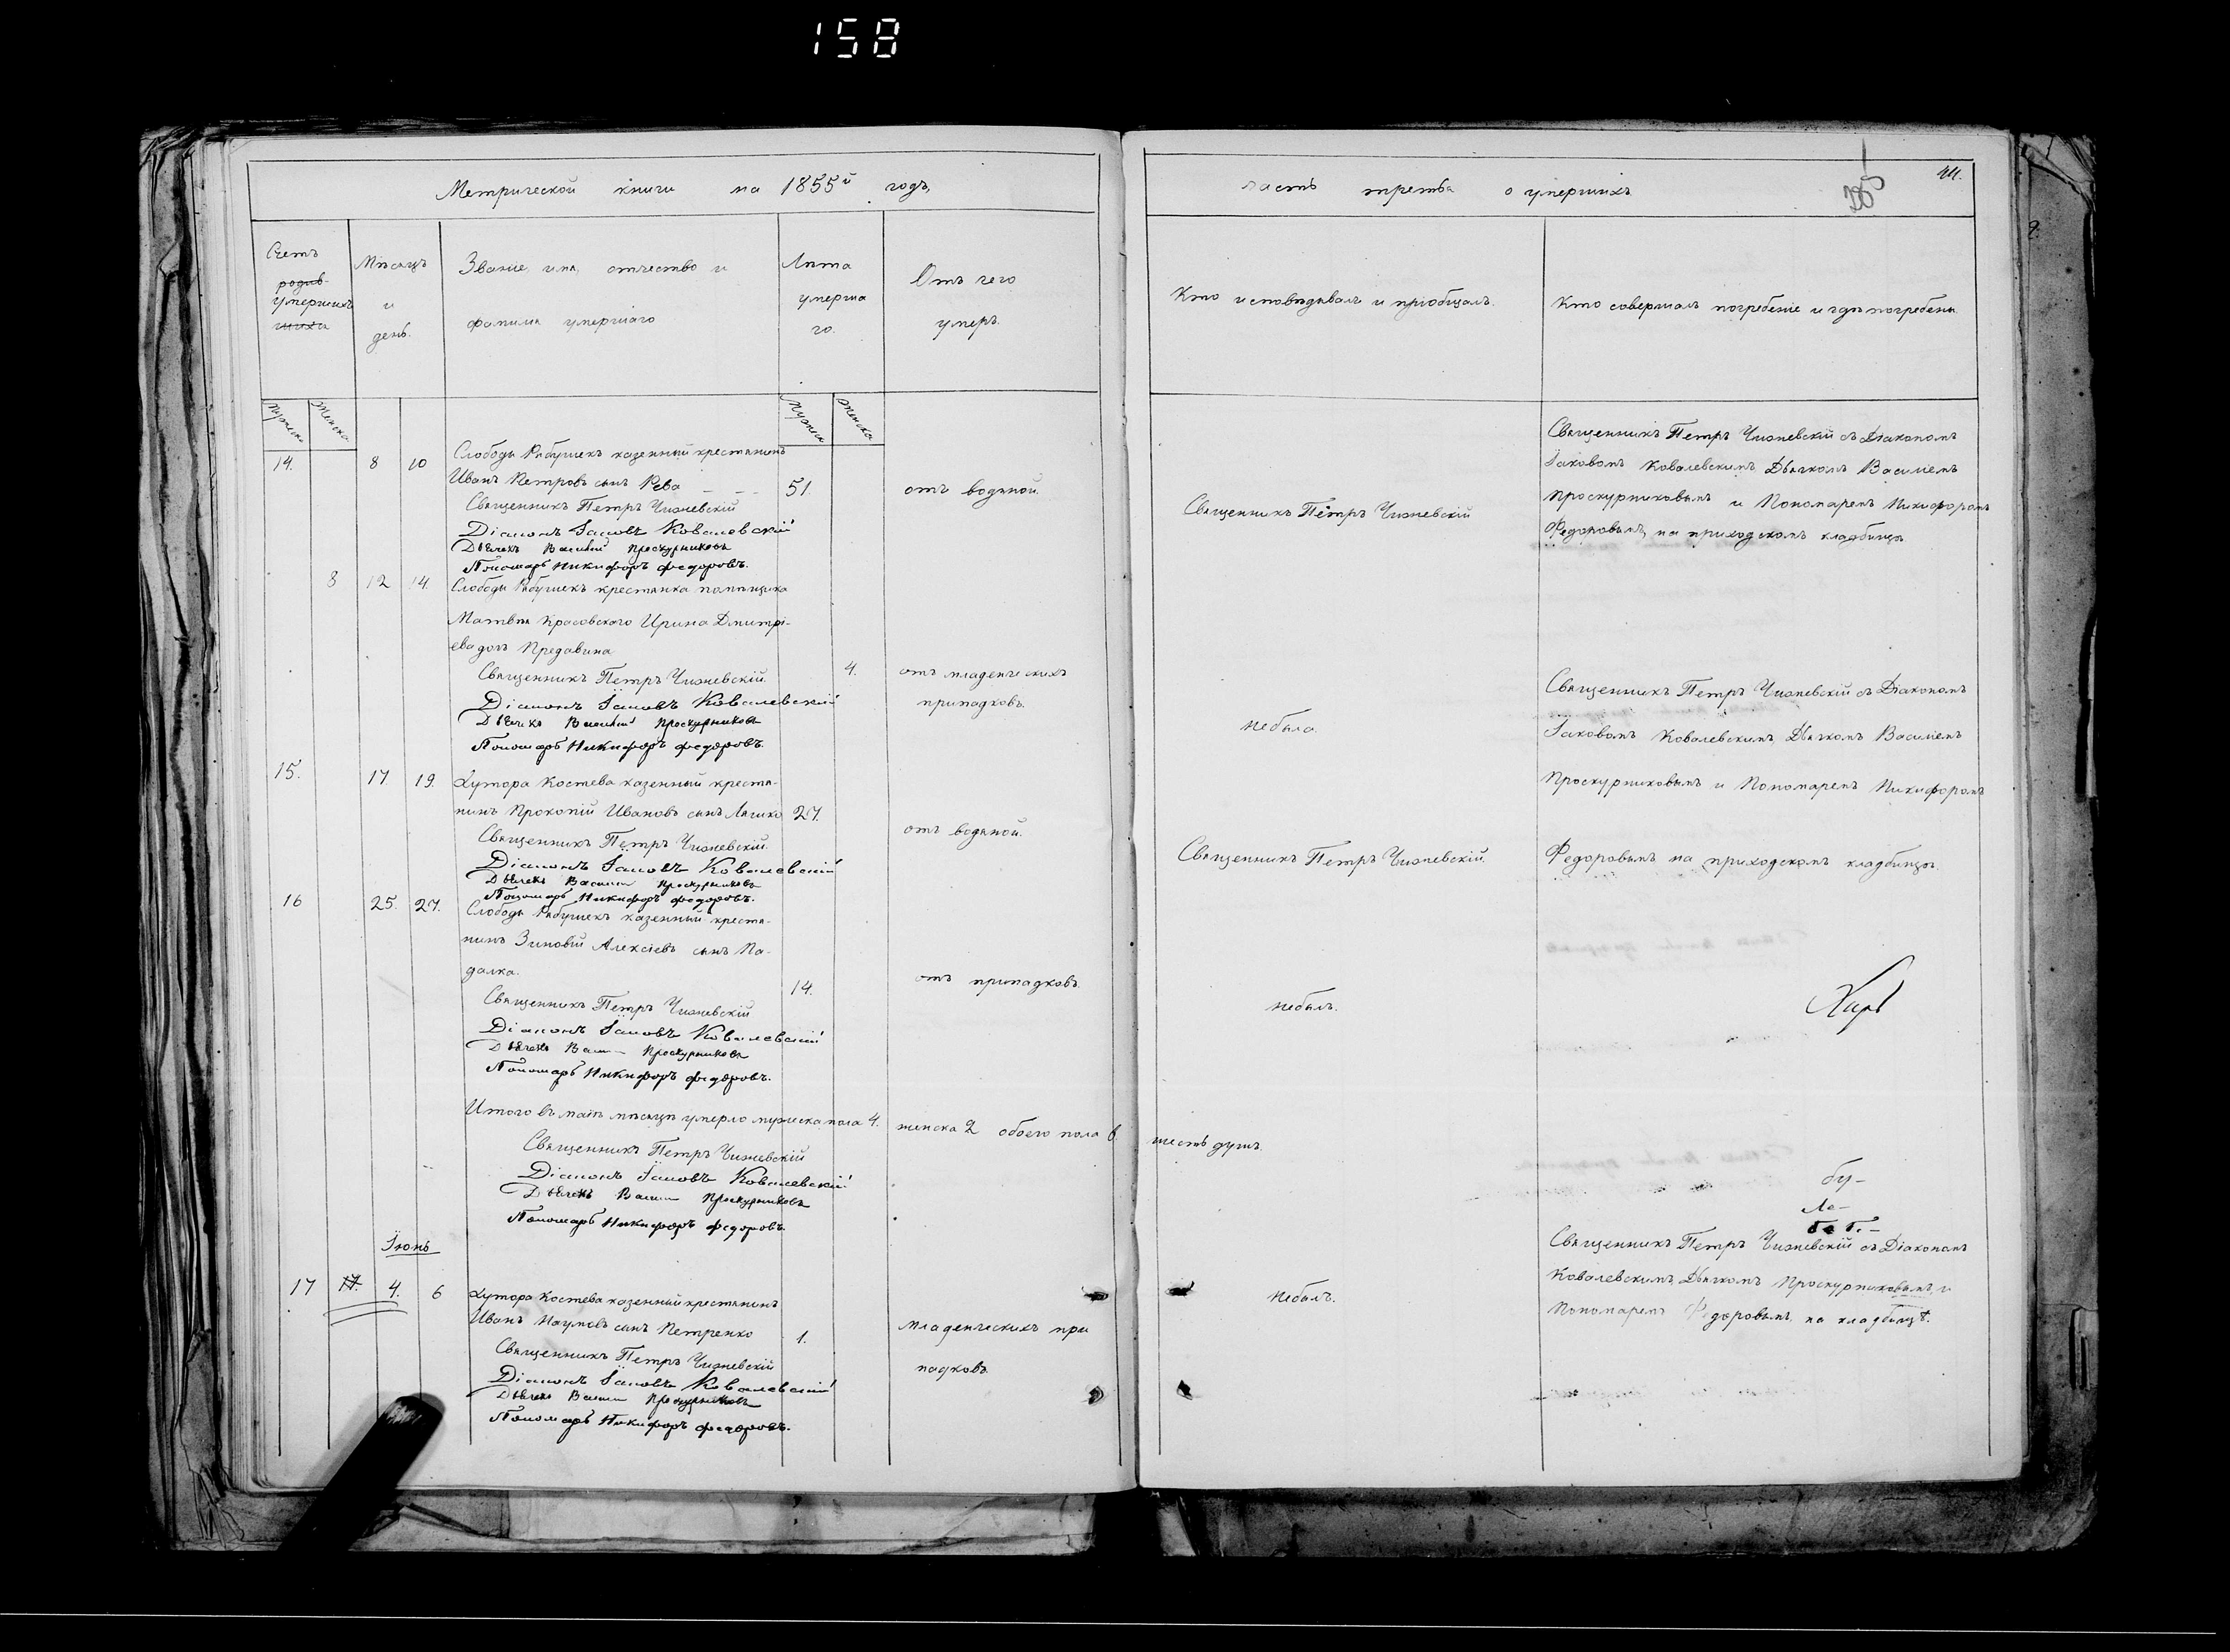 158
Метрической книги на 1855й годъ,
Счетъ
родив-
умершихъ
шихся
Мѣсяцъ
и
день.
Званіе, имя, отчество и
фамилія умершаго
Лѣта
умерша
го.
Отъ чего
умеръ.
Мужеск
Женска
Мужеск
Женска
14. 8 10 Слободы Рябушекъ казенный крестьянинъ
Иванъ Петровъ сынъ Рева 51. отъ водяной.
Священникъ Петръ Чижевскій
Діаконъ Іаковъ Ковалевскій
Дьячекъ Василій Проскурниковъ
Пономарь Никифоръ Федоровъ.
8 12 14. Слободы Рябушекъ крестьянка помѣщика
Матвѣя Красовскаго Ирина Дмитрі-
ева дочь Предавина
Священникъ Петръ Чижевскій. 4. отъ младенческихъ
Діаконъ Іаковъ Ковалевскій припадковъ.
Дьячекъ Василій Проскурниковъ
Пономарь Никифоръ Федоровъ.
15. 17. 19. Хутора Костева казенный крестья-
нинъ Прокопій Ивановъ сынъ Ляшко 27. отъ водяной.
Священникъ Петръ Чижевскій.
Діаконъ Іаковъ Ковалевскій
Дьячекъ Василій Проскурниковъ
Пономарь Никифоръ Федоровъ.
16 25. 27. Слободы Рябушекъ казенный крестья-
нинъ Зиновій Алексіевъ сынъ Па-
далка. 14. отъ припадковъ.
Священникъ Петръ Чижевскій
Діаконъ Іаковъ Ковалевскій
Дьячекъ Василій Проскурниковъ
Пономарь Никифоръ Федоровъ.
Итого въ маѣ мѣсяцѣ умерло мужеска пола 4. женска 2 обоего пола 6.
Священникъ Петръ Чижевскій
Діаконъ Іаковъ Ковалевскій
Дьячекъ Василій Проскурниковъ
Пономарь Никифоръ Федоровъ.
Іюнь
17 17. 4. 6 Хутора Костева казенный крестьянинъ
Иванъ Наумовъ сынъ Петренко 1. младенческихъ при
Священникъ Петръ Чижевскій падковъ
Діаконъ Іаковъ Ковалевскій
Дьячекъ Василій Проскурниковъ
Пономарь Никифоръ Федоровъ.
часть третья о умершихъ
Кто исповѣдывалъ и пріобщалъ.
Кто совершалъ погребеніе и гдѣ погребены.
Священникъ Петръ Чижевскій
Священникъ Петръ Чижевскій съ Діакономъ
Іаковомъ Ковалевскимъ Дьячкомъ Василіемъ
Проскурниковымъ и Пономаремъ Никифоромъ
Федоровымъ, на приходскомъ кладбищѣ
Небыла.
Священникъ Петръ Чижевскій съ Діакономъ
Іаковомъ Ковалевскимъ, Дьячкомъ Василіемъ
Проскурниковымъ и Пономаремъ Никифоромъ
Священникъ Петръ Чижевскій.
Федоровымъ на приходскомъ кладбищѣ.
Небылъ.
шесть душъ.
бу-
Священникъ Петръ Чижевскій съ Діакономъ
Небылъ.
Ковалевскимъ, Дьячкомъ Проскурниковымъ, и
Пономаремъ Федоровымъ, на кладбищѣ.